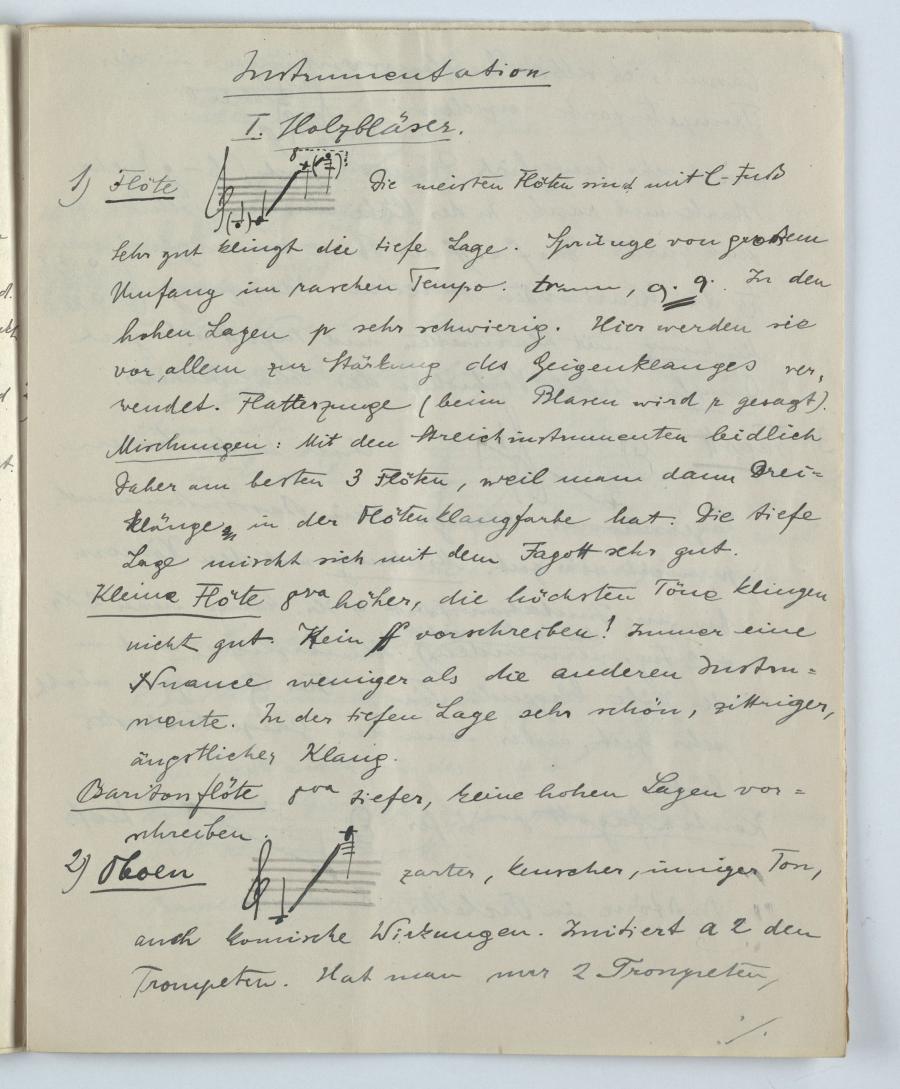 Instrumentation
I. Holzbläser.
1) Flöte Die meisten Flöten sind mit C-Fuß
Sehr gut klingt die tiefe Lage. Sprünge von großem
Umfang im raschen Tempo. In den
hohen Lagen p sehr schwierig. Hier werden sie
vor allem zur Stärkung des Geigenklanges ver-
wendet. Flatterzunge (beim Blasen wird r gesagt).
Mischungen: Mit den Streichinstrumenten leidlich
Daher am besten 3 Flöten, weil man dann Drei=
klänge in der Flötenklangfarbe hat. Die tiefe
Lage mischt sich mit dem Fagott sehr gut.
Kleine Flöte 8va höher, die höchsten Töne klingen
nicht gut. Kein ff vorschreiben! Immer eine
Nuance weniger als die anderen Instru=
mente. In der tiefen Lage sehr schön, zittriger,
ängstlicher Klang.
Baritonflöte 8va tiefer, keine hohen Lagen vor=
schreiben.
2) Oboen zarter, keuscher, inniger Ton,
auch komische Wirkungen. Imitiert a 2 den
Trompeten. Hat man nur 2 Trompeten,
./.